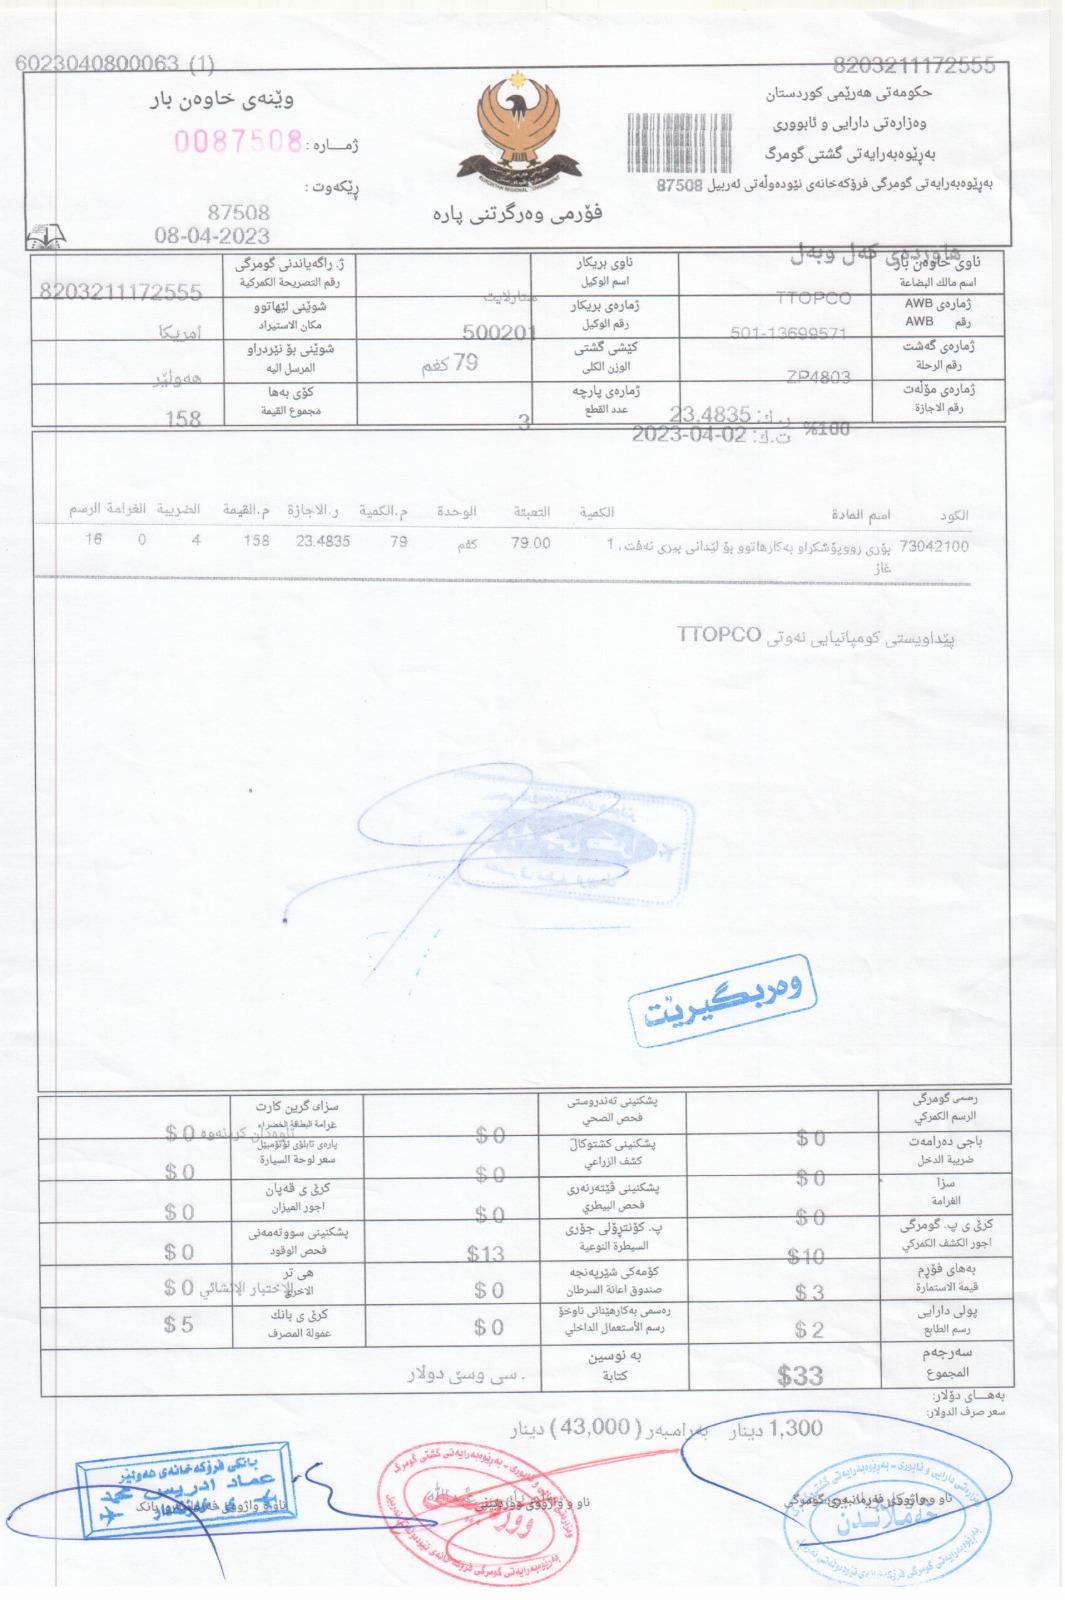 6023040800063 (1)
8203211172555
حکومەتی هەرێمی کوردستان
وەزارەتی دارایی و ئابووری
بەڕێوەبەرایەتی گشتی گومرگ
بەڕێوەبەرایەتی گومرگی فرۆکەخانەی نێودەوڵەتی ئەربیل 87508
فۆرمی وەرگرتنی پارە
وێنەی خاوەن بار
ژمــارە : 0087508
ڕێکەوت :
87508
08-04-2023
هاوردەی کەل وپەل
ناوی خاوەن بار
اسم مالك البضاعة
TTOPCO
ناوی بریکار
اسم الوكيل
ستارلايت
ژ. راگەیاندنی گومرگی
رقم التصريحة الكمركية
8203211172555
ژمارەی AWB
رقم AWB
501-13699571
ژمارەی بریکار
رقم الوكيل
500201
شوێنی لێهاتوو
مكان الاستيراد
امریکا
ژمارەی گەشت
رقم الرحلة
ZP4803
کێشی گشتی
الوزن الكلي
79 کغم
شوێنی بۆ نێردراو
المرسل اليه
هەولێر
ژمارەی مۆڵەت
رقم الاجازة
ر.ك: 23.4835
ت.ك: 2023-04-02
%100
ژمارەی پارچە
عدد القطع
3
کۆی بەها
مجموع القيمة
158
الكود اسم المادة الكمية التعبئة الوحدة م.الكمية ر.الاجازة م.القيمة الضريبة الغرامة الرسم
73042100 بۆری رووپۆشکراو بەکارهاتوو بۆ لێدانی بیری نەفت ، 1 79.00 كغم 79 23.4835 158 4 0 16
غاز
پێداویستی کومپانیایی نەوتی TTOPCO
وەربگیرێت
رسمی گومرگی
الرسم الكمركي
$ 0
پشکنینی تەندروستی
فحص الصحي
$ 0
سزای گرین کارت
غرامة البطاقة الخضراء
$ 0
باجی دەرامەت
ضريبة الدخل
$ 0
پشکنینی کشتوکاڵ
كشف الزراعي
$ 0
پارەی تابلۆی ئۆتۆمبێل
سعر لوحة السيارة
$ 0
سزا
الغرامة
$ 0
پشکنینی ڤێتەرنەری
فحص البيطري
$ 0
کرێ ی قەپان
اجور الميزان
$ 0
کرێ ی پ. گومرگی
اجور الكشف الكمركي
$10
پ. کۆنتڕۆلی جۆری
السيطرة النوعية
$13
پشکنینی سووتەمەنی
فحص الوقود
$ 0
بەهای فۆڕم
قيمة الاستمارة
$ 3
کۆمەکی شێرپەنجە
صندوق اعانة السرطان
$ 0
هی تر
الاخرى
الاختبار الإنشائي
$ 0
پولی دارایی
رسم الطابع
$ 2
رەسمی بەکارهێنانی ناوخۆ
رسم الأستعمال الداخلي
$ 0
کرێ ی بانك
عمولة المصرف
$ 5
سەرجەم
المجموع
$33
بە نوسین
كتابة
سی وسێ دولار .
بەهـــای دۆلار:
سعر صرف الدولار:
1,300 دینار بەرامبەر ( 43,000 ) دینار
بانکی فرۆکەخانەی هەولێر
عماد ادریس
ناو و واژووی وەرگرتنی
خەملاندن